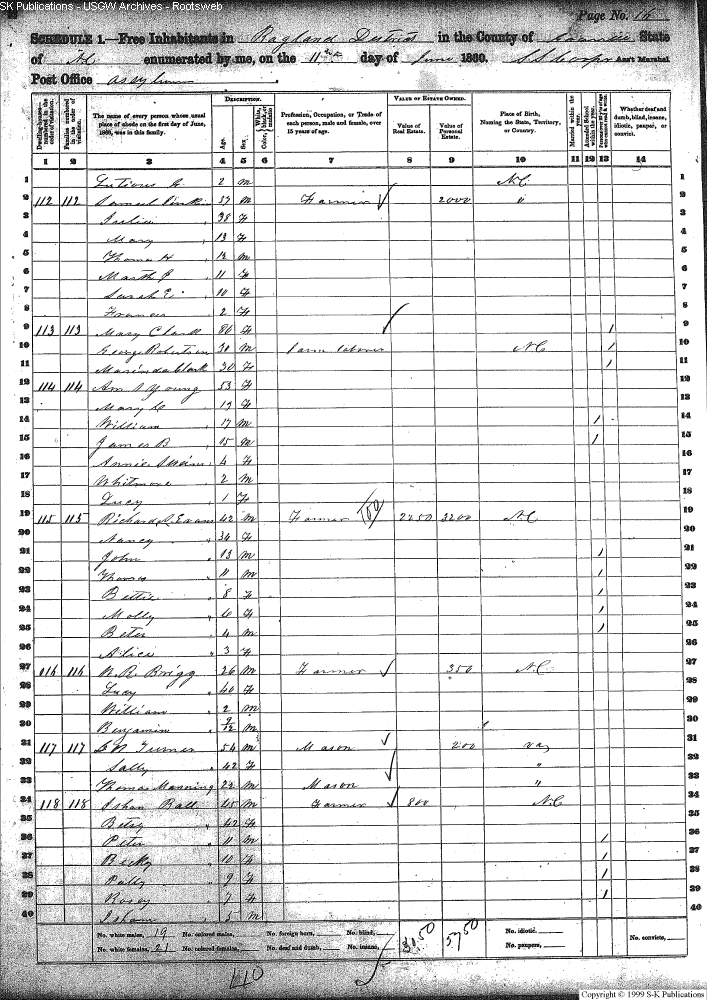 SK Publications - USGW Archives - Rootsweb
Page No. 16
SCHEDULE 1.—Free Inhabitants in Ragland District in the County of Granville State
of NC enumerated by me, on the 11th day of June 1860. Ass't Marshal
Post Office
DESCRIPTION. VALUE OF ESTATE OWNED.
Dwelling-houses—numbered in the order of visitation. Families numbered in the order of visitation. The name of every person whose usual place of abode on the first day of June, 1860, was in this family. Age. Sex. Color, White, black, or mulatto. Profession, Occupation, or Trade of each person, male and female, over 15 years of age. Value of Real Estate. Value of Personal Estate. Place of Birth, Naming the State, Territory, or Country. Married within the year. Attended School within the year. Whether deaf and dumb, blind, insane, idiotic, pauper, or convict.
1 2 3 4 5 6 7 8 9 10 11 12 13 14
1 2 m NC 1
2 112 112 Samuel 37 m Farmer 2000 " 2
3 Julia 38 F 3
4 Mary 13 F 4
5 Thomas H 12 m 5
6 Marth P 11 F 6
7 Sarah E 10 F 7
8 Frances 2 F 8
9 113 113 Mary Clark 80 F / 9
10 George Robertson 30 m Farm laborer NC / 10
11 Clark 30 F / 11
12 114 114 Young 53 F 12
13 Mary 19 F 13
14 William 17 m / 14
15 James B 15 m / 15
16 Annie 4 F 16
17 Whitmore 2 m 17
18 Lucy 1 F 18
19 115 115 Richard Evans 42 m Farmer 2250 3200 NC 19
20 Nancy 34 F 20
21 John 13 m / 21
22 Thomas 11 m / 22
23 Bettie 8 F / 23
24 Molly 6 F / 24
25 Peter 4 m / 25
26 Alice 3 F 26
27 116 116 Brigg 26 m Farmer 350 NC 27
28 Lucy 40 F 28
29 William 2 m 29
30 Benjamin 9/12 m 30
31 117 117 Turner 54 m Mason 200 Va 31
32 Sally 42 F " 32
33 Thomas Manning 22 m Mason " 33
34 118 118 Isham Ball 45 m Farmer 800 NC 34
35 Betsy 42 F 35
36 Peter 11 m / 36
37 Becky 10 F / 37
38 Patty 9 F / 38
39 Rosey 7 F / 39
40 Isham 5 m 40
No. white males, 19 No. colored males, No. foreign born, No. blind, 3050 5750 No. idiotic, No. convicts,
No. white females, 21 No. colored females, No. deaf and dumb, No. insane, No. paupers,
40
Copyright © 1999 S-K Publications